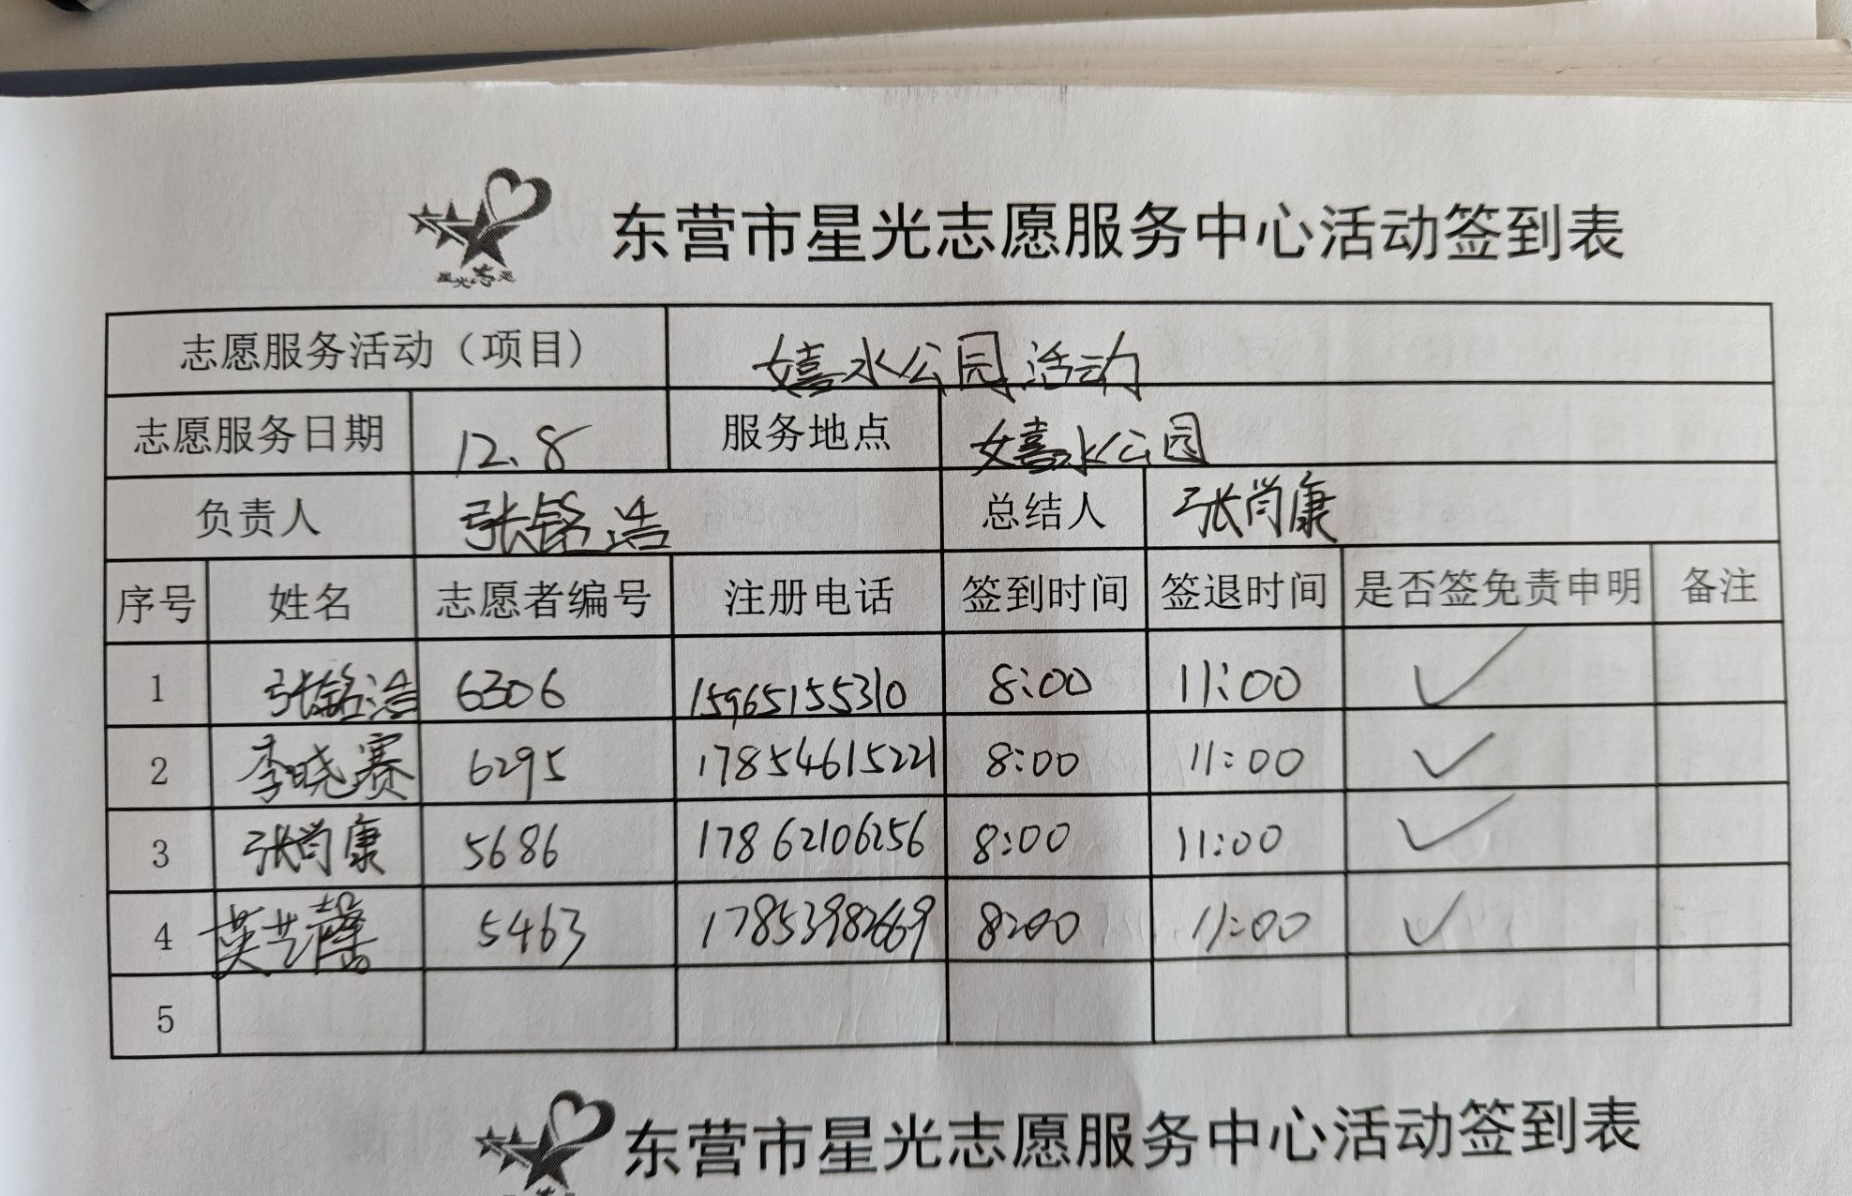 东营市星光志愿服务中心活动签到表
星光志愿
志愿服务活动（项目） 嬉水公园活动
志愿服务日期 12.8 服务地点 嬉水公园
负责人 张铭浩 总结人 张尚康
序号 姓名 志愿者编号 注册电话 签到时间 签退时间 是否签免责申明 备注
1 张铭浩 6306 15965155310 8:00 11:00 ✓
2 李晓赛 6295 17854615221 8:00 11:00 ✓
3 张尚康 5686 17862106256 8:00 11:00 ✓
4 英艺馨 5463 17853982669 8:00 11:00 ✓
5
东营市星光志愿服务中心活动签到表